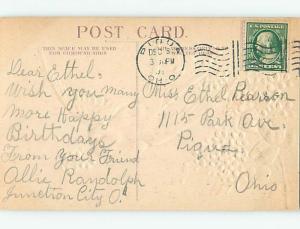 POST CARD.
THIS SPACE MAY BE USED
FOR COMMUNICATION
DEC
3 PM
OHIO
Dear Ethel:
Wish you many
More Happy
Birthdays
From Your Friend
Allie Randolph
Junction City O.
Miss Ethel Pearson
1115 Park Ave.
Piqua
Ohio